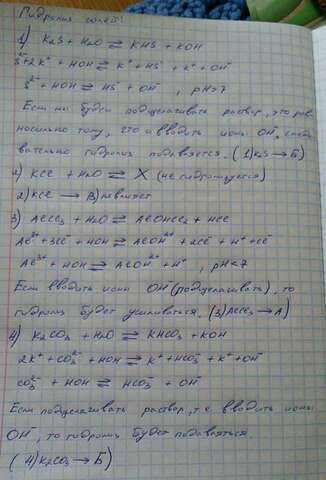 Гидролиз солей:
1) K2S + H2O ⇄ KHS + KOH
S²⁻ + 2K⁺ + HOH ⇄ K⁺ + HS⁻ + K⁺ + OH⁻
S²⁻ + HOH ⇄ HS⁻ + OH⁻, pH>7
Если мы будем подщелачивать раствор, это рав-
носильно тому, что и вводить ионы OH⁻, следо-
вательно гидролиз подавляется. (1) K2S → Б)
2) KCl + H2O ⇄ X (не гидролизуется)
2) KCl → В) не влияет
3) AlCl3 + H2O ⇄ AlOHCl2 + HCl
Al³⁺ + 3Cl⁻ + HOH ⇄ AlOH²⁺ + 2Cl⁻ + H⁺ + Cl⁻
Al³⁺ + HOH ⇄ AlOH²⁺ + H⁺, pH<7
Если вводить ионы OH⁻ (подщелачивать), то
гидролиз будет усиливаться. (3) AlCl3 → А)
4) K2CO3 + H2O ⇄ KHCO3 + KOH
2K⁺ + CO3²⁻ + HOH ⇄ K⁺ + HCO3⁻ + K⁺ + OH⁻
CO3²⁻ + HOH ⇄ HCO3⁻ + OH⁻
Если подщелачивать раствор, т.е. вводить ионы
OH⁻, то гидролиз будет подавляться.
(4) K2CO3 → Б)